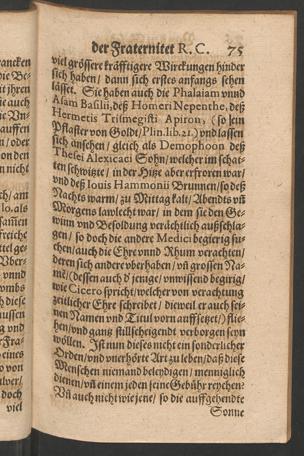 der Fraternitet R. C. 75
viel grössere kräfftigere Wirckungen hinder
sich haben / dann sich erstes anfangs sehen
lässet. Sie haben auch die Phalaiam vnnd
Asam Basilii, deß Homeri Nepenthe, deß
Hermetis Trismegisti Apiron, (so sein
Pflaster von Goldt / Plin. lib. 21.) vnd lassen
sich ansehen / gleich als Demophoon deß
Thesei Alexicaci Sohn / welcher im schat-
ten schwitzte / in der Hitze aber erfroren war /
vnd deß Iouis Hammonii Brunnen / so deß
Nachts warm / zu Mittag kalt / Abendts vñ
Morgens lawlecht war / in dem sie den Ge-
winn vnd Besoldung verächtlich außschla-
gen / so doch die andere Medici begierig su-
chen / auch die Ehre vnnd Rhum verachten /
deren sich andere vberhaben / vñ grossen Na-
mē / dessen auch d' jenige / vnwissend begirig /
wie Cicero spricht / welcher von verachtung
zeitlicher Ehre schreibet / dieweil er auch sei-
nen Namen vnd Titul vorn auffsetzet /) flie-
hen / vnd gantz stillscheigendt verborgen seyn
wöllen. Ist nun dieses nicht ein sonderlicher
Orden / vnd vnerhörte Art zu leben / daß diese
Menschen niemand beleydigen / menniglich
dienen / vñ einem jeden seine Gebühr reychen?
Vñ auch nicht wie jene / so die auffgehende
Sonne
rancken
die Be-
it jhren
auffen
oder
on den
nicht
lo. als
freiche
vnnd
diese
nussen
vnd
eines
so von
doch
viel